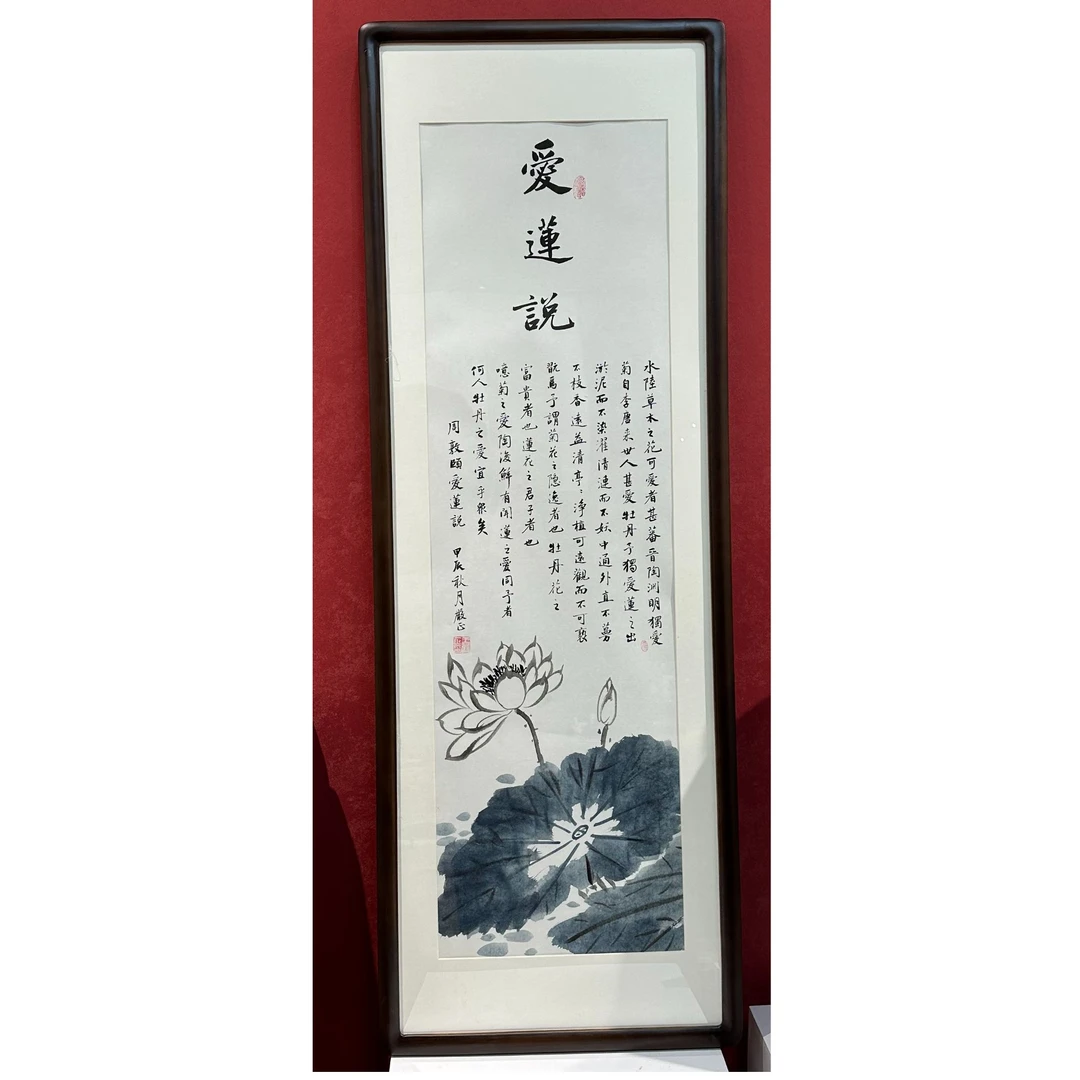 愛蓮説
水陸草木之花可愛者甚蕃晋陶渊明獨愛
菊自李唐来世人甚愛牡丹予獨愛蓮之出
淤泥而不染濯清漣而不妖中通外直不蔓
不枝香遠益清亭〻淨植可遠觀而不可褻
翫焉予謂菊花之隐逸者也牡丹花之
富貴者也蓮花之君子者也
噫菊之愛陶後鮮有聞蓮之愛同予者
何人牡丹之愛宜乎衆矣
周敦頤愛蓮説 甲辰秋月嚴正